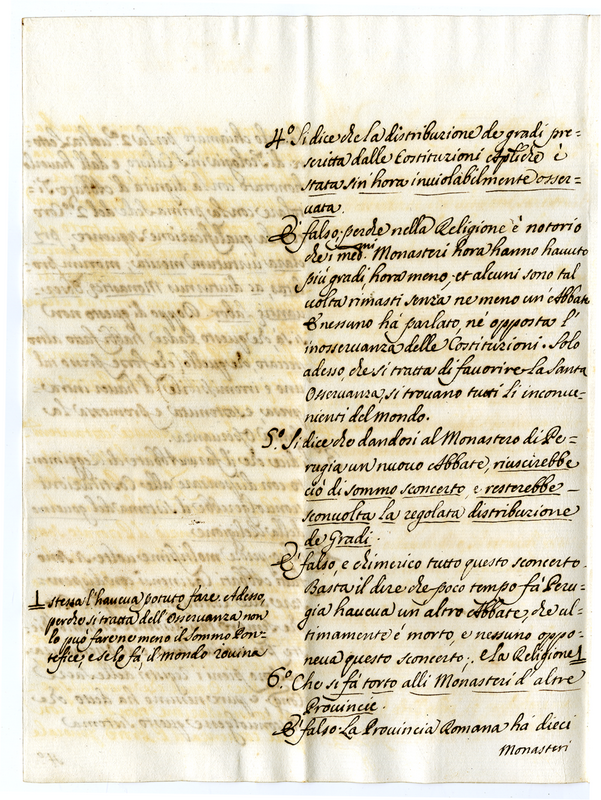 4.° Si dice che la distribuzione de gradi pre-
scritta dalle Costituzioni è
stata sin' hora inviolabilmente osser-
vata.
E' falso: perche nella Religione è notorio
che i med.mi Monasteri hora hanno havuto
più gradi hora meno, et alcuni sono tal
volta rimasti senza ne meno un' Abbate
E nessuno há parlato, né opposta l'
inosservanza delle Costituzioni. Solo
adesso, che si tratta di favorire la Santa
Osservanza, si trovano tutti li inconve-
nienti del Mondo.
5.° Si dice che dandosi al Monastero di Pe-
rugia un nuovo Abbate, riuscirebbe
ciò di sommo sconcerto, e resterebbe
sconvolta la regolata distribuzione
de Gradi.
E' falso, e chimerico tutto questo sconcerto.
Basta il dire che poco tempo fà Peru-
gia haveva un altro Abbate, che ul-
timamente è morto, e nessuno oppo-
neva questo sconcerto; e la Religione
stessa l'haveva potuto fare. Adesso,
perche si tratta dell'Osservanza non
lo può fare ne meno il Sommo Pon-
tefice, e se lo fá, il mondo rovina
6.° Che si fá torto alli Monasteri d'altre
Provincie.
E' falso. La Provincia Romana ha dieci
Monasteri